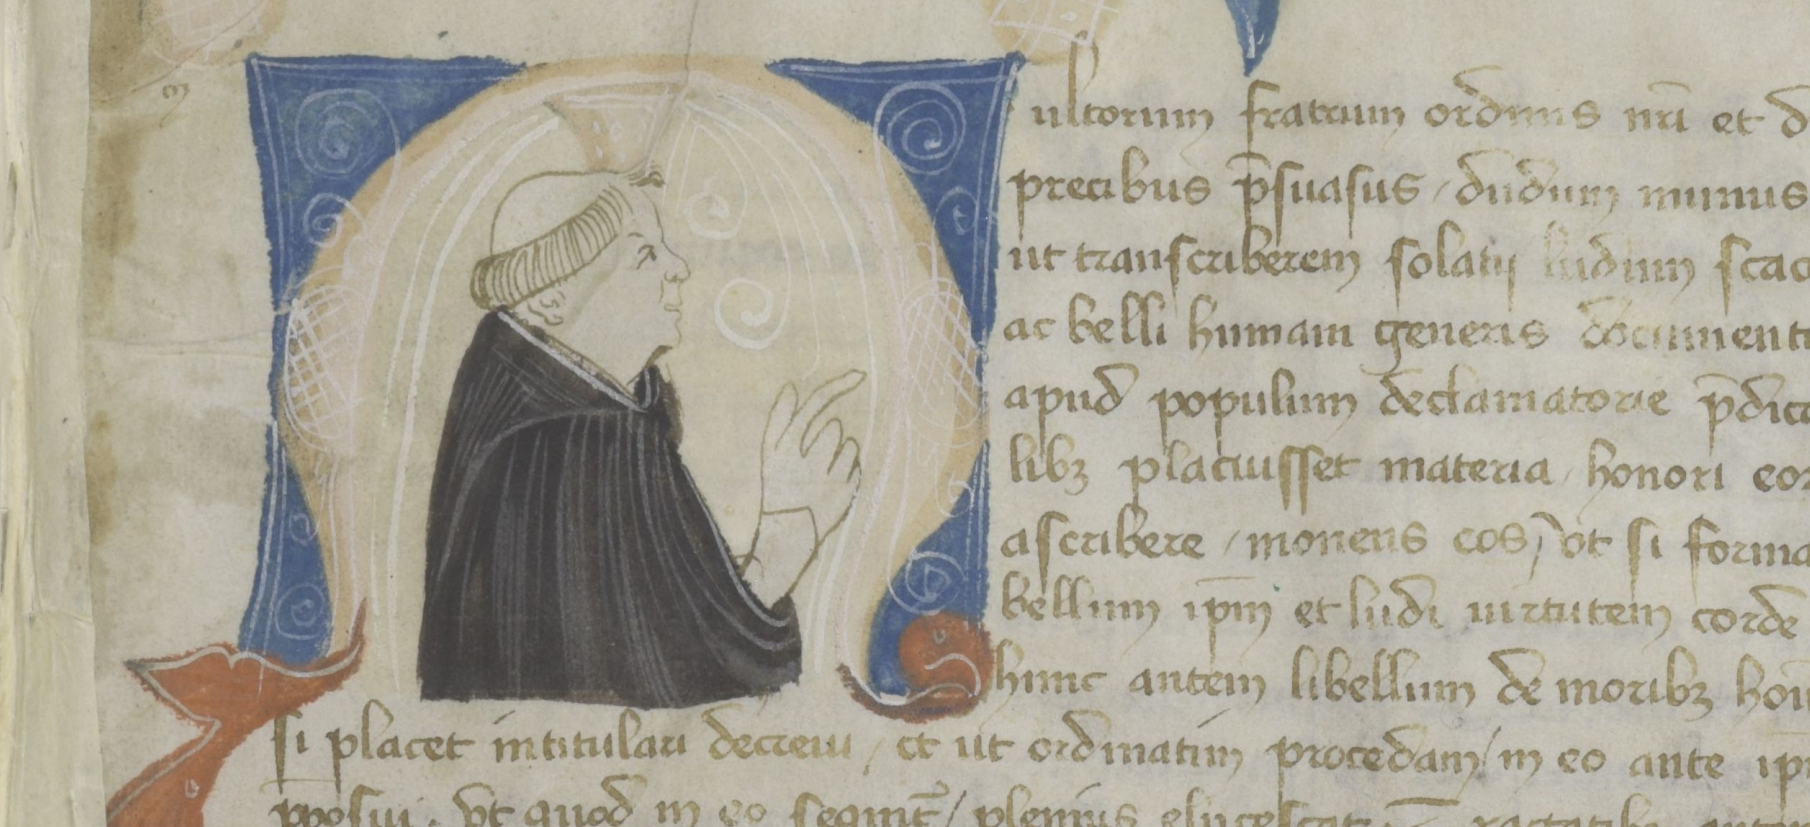 ultorum fratrum ordinis nri et d
precibus p̄suasus / dudum munus
ut transcriberem solatij ludum scac
ac belli humani generis documenti
apud populum declamatorie p̄dica
libꝫ placuisset materia / honori eor
ascribere / monens eos / vt si forma
bellum ip̄m et ludi uirtutem corde
hunc autem libellum de moribꝫ hom
si placet intitulari decreui / et ut ordinatim procedam / in eo ante ip
pposui. Vt quod in eo seqnit̄ / plenius elucescat